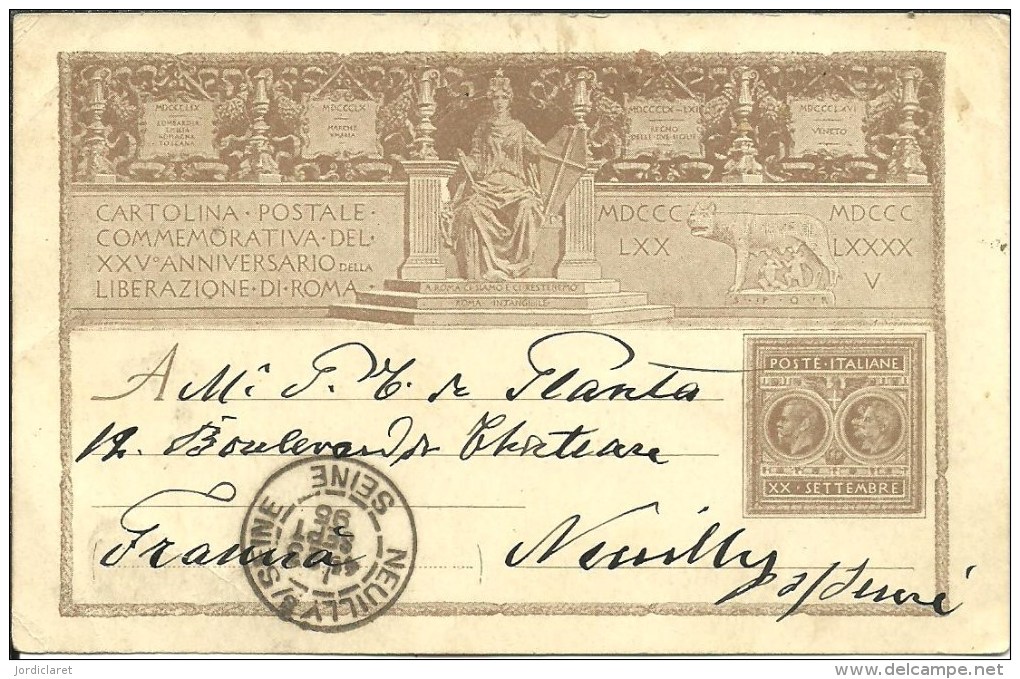 MDCCCLIX
LOMBARDIA
EMILIA
ROMAGNA
TOSCANA
MDCCCLX
MARCHE
UMBRIA
MDCCCLX-LXI
REGNO
DELLE DUE SICILIE
MDCCCLXVI
VENETO
CARTOLINA · POSTALE ·
COMMEMORATIVA · DEL ·
XXV° ANNIVERSARIO DELLA
LIBERAZIONE · DI · ROMA ·
A ROMA CI SIAMO E CI RESTEREMO
ROMA INTANGIBILE
MDCCC
LXX
MDCCC
LXXXX
V
S · P · Q · R
POSTE · ITALIANE
XX · SETTEMBRE
A Mr P. C. de Planta
12. Boulevard du Château
Francia Neuilly
s/Seine
NEUILLY S/SEINE
SEINE
SEPT
95
jordiclaret
www.delcampe.net